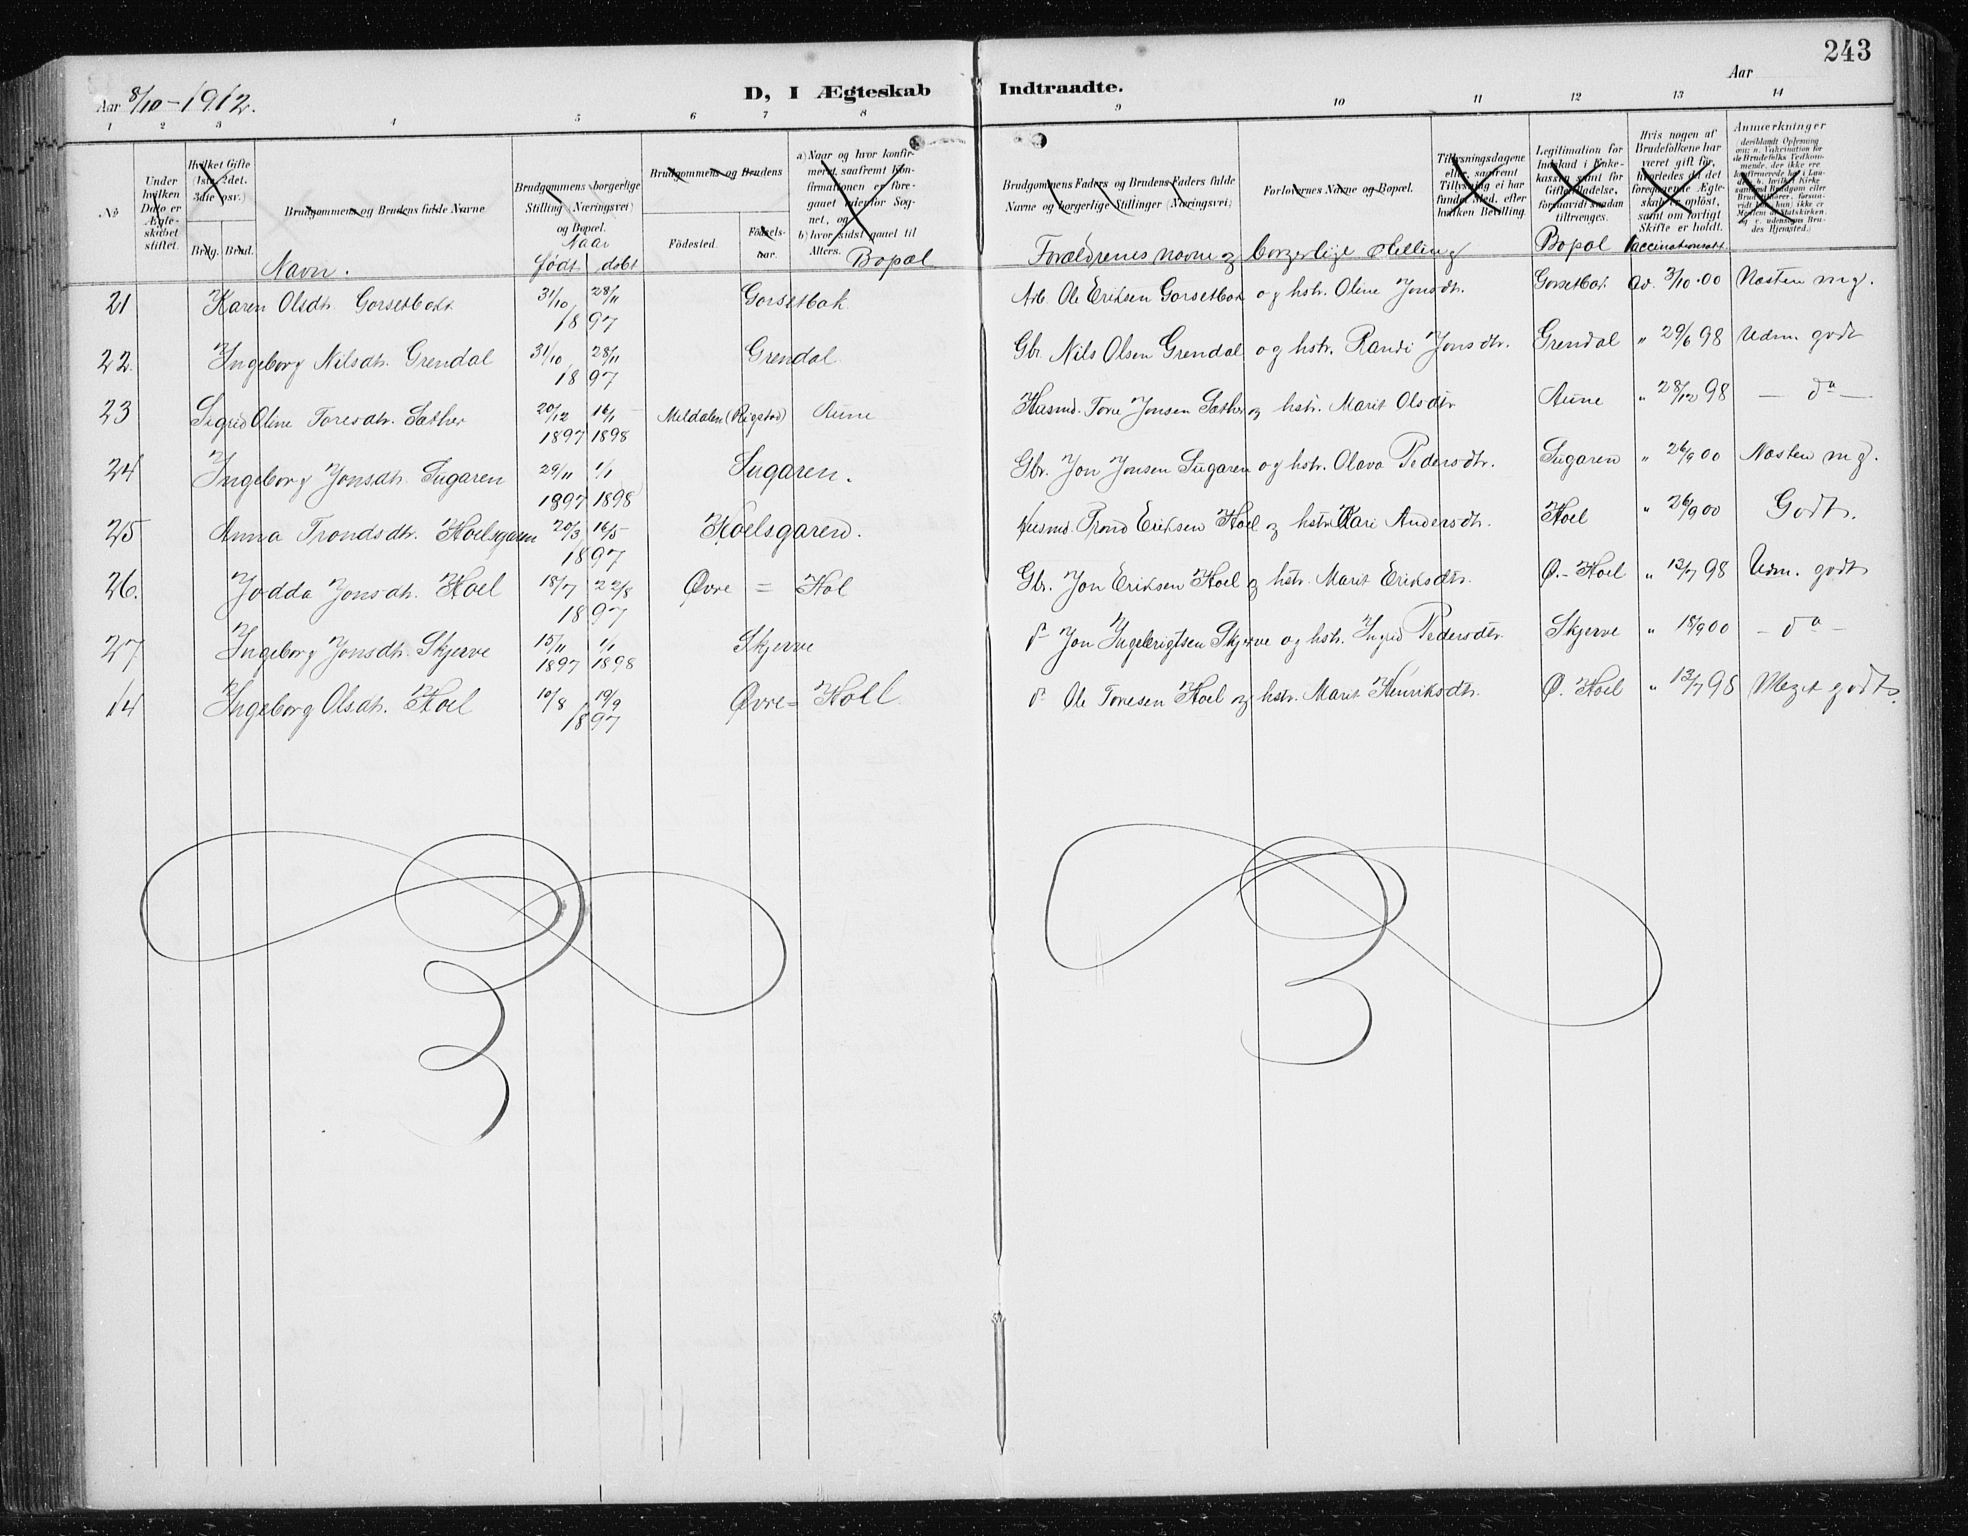 243
Aar 8/10 - 1912.
D, I Ægteskab Indtraadte.
Aar
1 2 3 4 5 6 7 8 9 10 11 12 13 14
No
Under hvilken Dato er Ægteskabet stiftet.
Hvilket Gifte (1ste, 2det, 3die osv.)
Brdg. Brud.
Brudgommens og Brudens fulde Navne
Navn.
Brudgommens borgerlige Stilling (Næringsvei) og Bopæl.
Naar
født døbt
Brudgommens og Brudens
Fødested.
Fødselsaar.
a) Naar og hvor konfirmeret, saafremt Konfirmationen er foregaaet udenfor Sognet, og
b) hvor sidst gaaet til Alters.
Bopæl
Brudgommens Faders og Brudens Faders fulde Navne og borgerlige Stillinger (Næringsvei)
Forlovernes Navne og Bopæl.
Forældrenes navne og borgerlige stilling
Tillysningsdagene eller, saafremt Tillysning ei har fundet Sted, efter hvilken Bevilling.
Legitimation for Indskud i Enkekassen samt for Giftetilladelse, forsaavidt saadan tiltrenges.
Bopæl
Hvis nogen af Brudefolkene har været gift før, hvorledes da det foregaaende Ægteskab er opløst, samt om lovligt Skifte er holdt.
Vaccinationsatt.
Anmærkninger
21 Karen Olsdt. Gorsetbakk 31/10 28/11 1897 Gorsetbak Arb. Ole Eriksen Gorsetbak og hstr. Oline Jonsdtr. Gorsetbak Av. 3/10.00 Næsten mg.
22. Ingeborg Nilsdtr. Grendal 31/10 28/11 1897 Grendal Gbr. Nils Olsen Grendal og hstr. Randi Jonsdtr. Grendal " 29/6 98 Udm. godt
23 Sigrid Oline Toresdtr. Sæther 20/12 1897 16/1 1898 Meldalen (Rigstad) Aune Husmd. Tore Jonsen Sæther og hstr. Marit Olsdtr Aune " 28/12 98 — do —
24 Ingeborg Jonsdtr. Sugaren 29/11 1897 1/1 1898 Sugaren. Gbr. Jon Jonsen Sugaren og hstr. Olava Pedersdtr. Sugaren " 26/9 00 Næsten mg.
25 Anna Trondsdtr. Hoelsgaren 20/3 16/5 1897 Hoelsgaren. Husmd. Trond Eriksen Hoel og hstr. Kari Andersdtr. Hoel " 26/9 00 Godt.
26. Jødda Jonsdtr. Hoel 18/7 22/8 1897 Øvre = Hol Gbr. Jon Eriksen Hoel og hstr. Marit Eriksdtr. Ø.- Hoel " 12/7 98 Udm. godt
27 Ingeborg Jonsdtr. Skjerve 15/11 1897 1/1 1898 Skjerve do Jon Ingebrigtsen Skjerve og hstr. Ingrid Pedersdtr Skjerve " 18/9 00 — do —
14 Ingeborg Olsdtr. Hoel 10/8 19/9 1897 Øvre = Holl do Ole Toresen Hoel og hstr. Marit Henriksdtr. Ø. Hoel " 12/7 98 Meget godt.